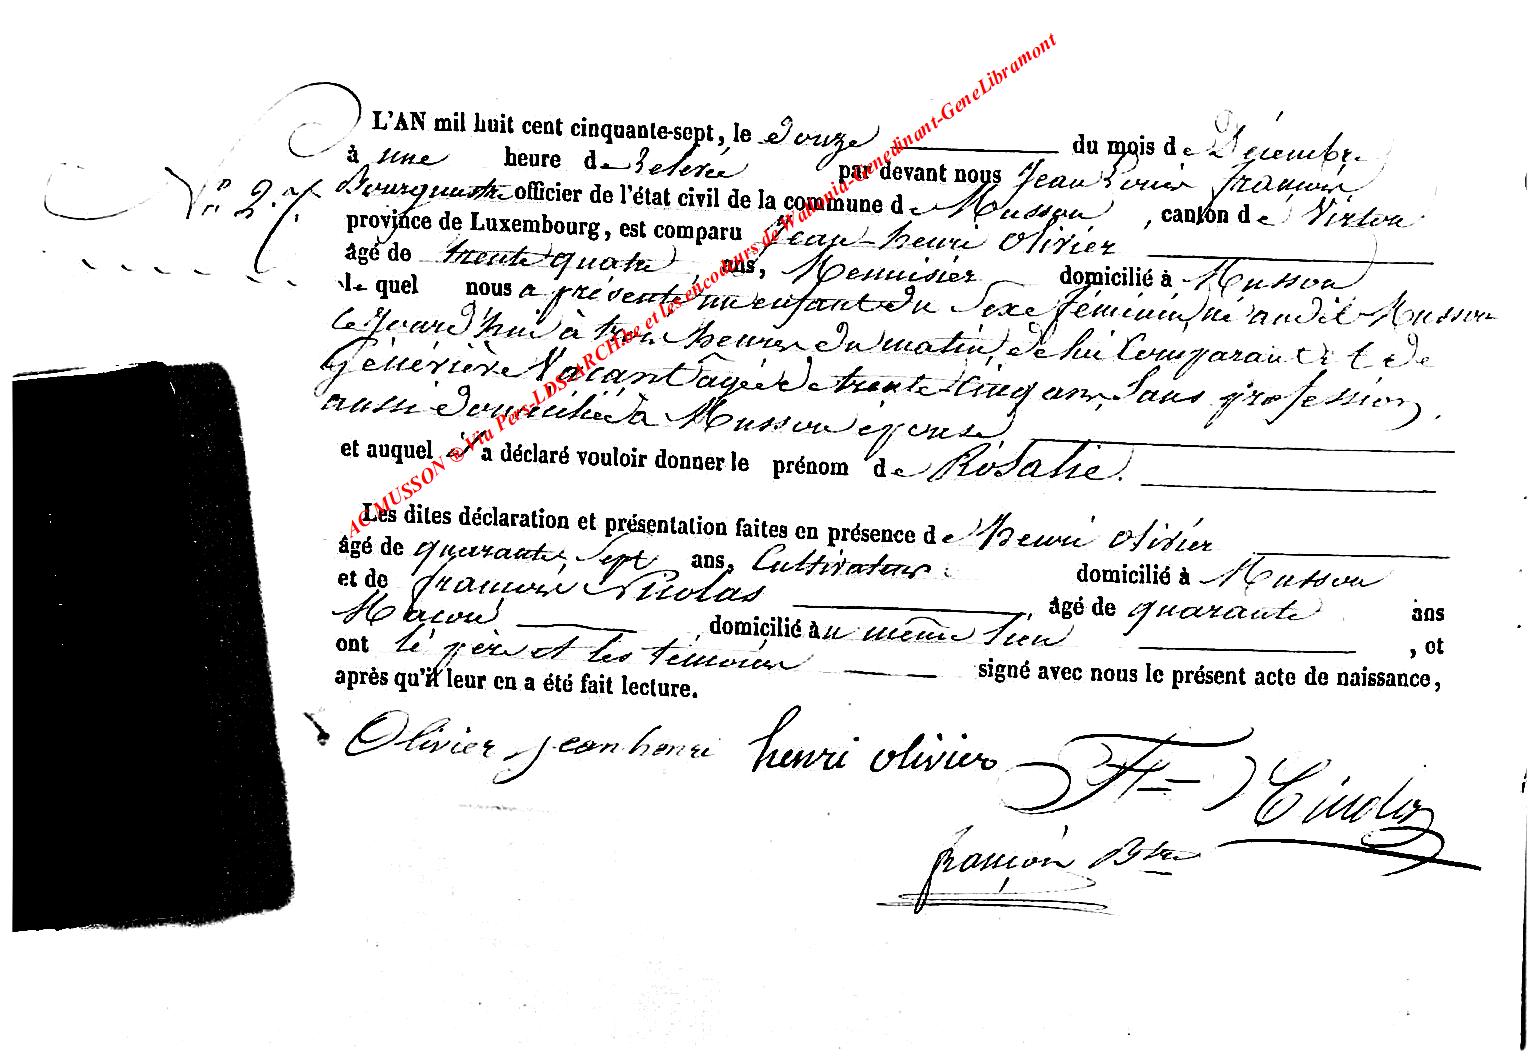 L'AN mil huit cent cinquante-sept, le douze du mois de Décembre
à une heure de relevée par devant nous Jean Louis françois
N° 27.
officier de l'état civil de la commune de Musson, canton de Virton
province de Luxembourg, est comparu Jean-henri Olivier
âgé de trente quatre ans, Menuisier domicilié à Musson
le quel nous a présenté un enfant du sexe féminin, né audit Musson
ce jourd'hui à trois heures du matin, de lui Comparant et de
âgée de trente cinq ans, sans profession,
aussi domiciliée à Musson épouse
et auquel il a déclaré vouloir donner le prénom de Rosalie.
Les dites déclaration et présentation faites en présence de henri Olivier
âgé de quarante sept ans, Cultivateur domicilié à Musson
et de françois Nicolas âgé de quarante ans
Maçon domicilié au même lieu, et
ont le père et les témoins signé avec nous le présent acte de naissance,
après qu'il leur en a été fait lecture.
Olivier jean henri henri olivier
françois
AC MUSSON ® Via Pers-LDS-ARCHbe et les encodeurs de Wallonia-Genedinant-GeneLibramont